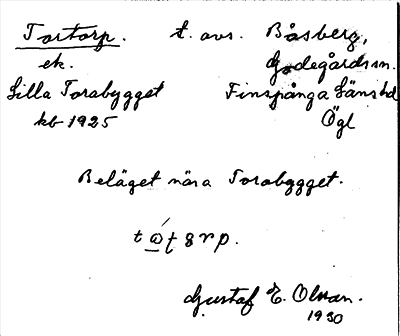 Tortorp. t. avs. Båsberg,
ek. Godegårds sn.
Lilla Torabygget Finspånga Länshd
kb 1925 Ögl
Beläget nära Torabygget.
Gustaf E. Olsson.
1930